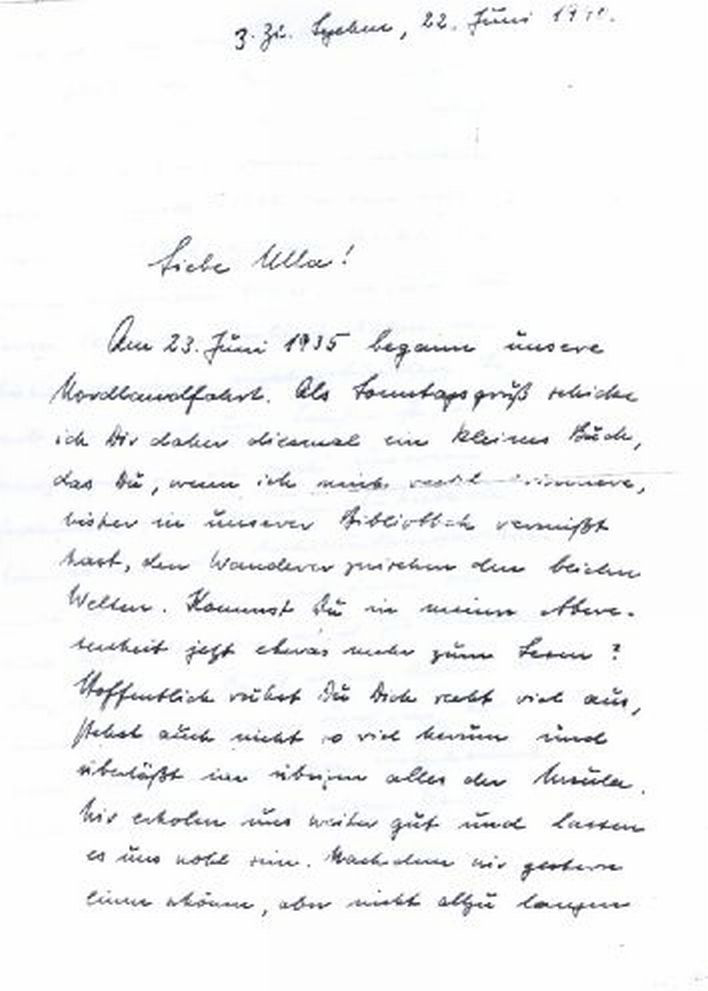 z. Zt. Lychen, 22. Juni
Liebe Ulla!
Am 23. Juni 1935 begann unsere
Nordlandfahrt. Als Sonntagsgruß schicke
ich Dir daher diesmal ein kleines Buch,
das Du, wenn ich mich recht erinnere,
bisher in unserer Bibliothek vermißt
hast, den Wanderer zwischen den beiden
Welten. Kommst Du in meiner Abwe-
senheit jetzt etwas mehr zum Lesen?
Hoffentlich ruhst Du Dich recht viel aus,
stehst auch nicht so viel herum und
überläßt im übrigen alles der Ursula.
Wir erholen uns weiter gut und lassen
es uns wohl sein. Nachdem wir gestern
einen schönen, aber nicht allzu langen